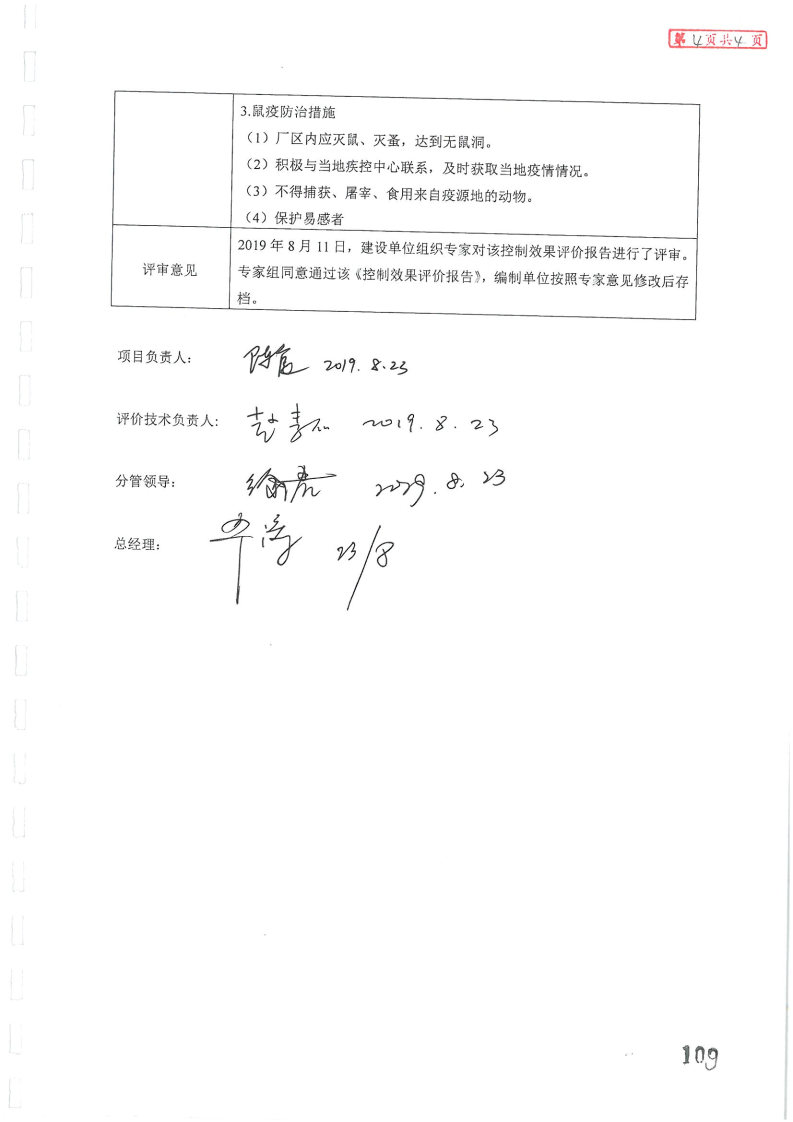 第4页共4页
3.鼠疫防治措施
（1）厂区内应灭鼠、灭蚤，达到无鼠洞。
（2）积极与当地疾控中心联系，及时获取当地疫情情况。
（3）不得捕获、屠宰、食用来自疫源地的动物。
（4）保护易感者
评审意见
2019年8月11日，建设单位组织专家对该控制效果评价报告进行了评审。
专家组同意通过该《控制效果评价报告》，编制单位按照专家意见修改后存
档。
项目负责人： 2019.8.23
评价技术负责人： 2019.8.23
分管领导： 2019.8.23
总经理： 23/8
109